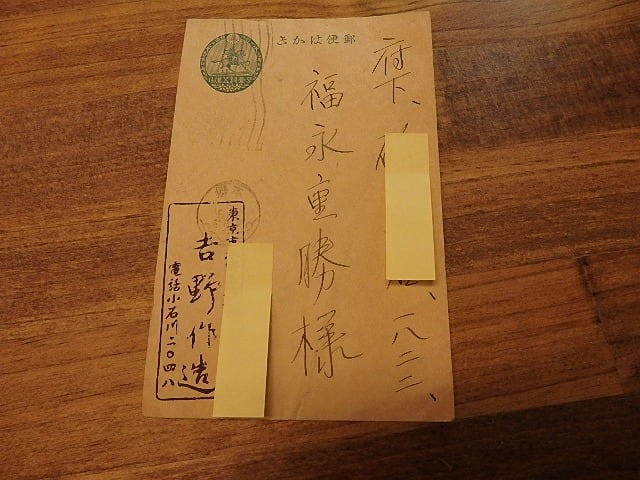 郵便はかき
府下、
一八二二、
福永重勝様
東京市
吉野作造
電話小石川二〇四八